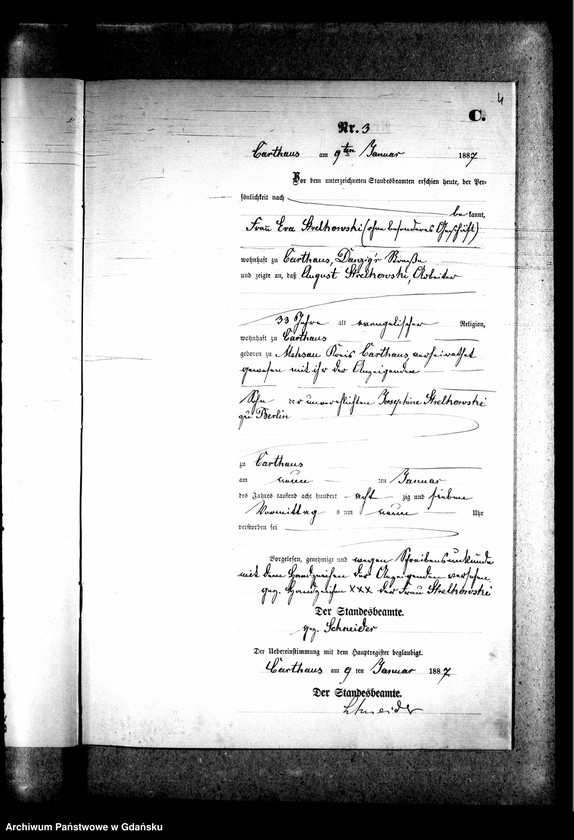 4
C.
Nr. 3
Carthaus am 9ten Januar 1887
Vor dem unterzeichneten Standesbeamten erschien heute, der Per-
sönlichkeit nach
bekannt,
Frau Eva Strelkowski (ohne besonderes Geschäft)
wohnhaft zu Carthaus, Danzig'r Straße
und zeigte an, daß August Strelkowski, Arbeiter
33 Jahre alt evangelischer Religion,
wohnhaft zu Carthaus
geboren zu Mehsau Kreis Carthaus, verheirathet
gewesen mit ihr der Anzeigenden
Sohn der unverehlichten Josephine Strelkowski
zu Berlin
zu Carthaus
am neun ten Januar
des Jahres tausend acht hundert acht zig und sieben
Vormittag s um neun Uhr
verstorben sei
Vorgelesen, genehmigt und wegen Schreibensunkunde
mit dem Handzeichen der Anzeigenden versehen
gez. Handzeichen XXX der Frau Strelkowski
Der Standesbeamte.
gez. Schneider
Der Uebereinstimmung mit dem Hauptregister beglaubigt.
Carthaus am 9 ten Januar 1887
Der Standesbeamte.
Schneider
Archiwum Państwowe w Gdańsku